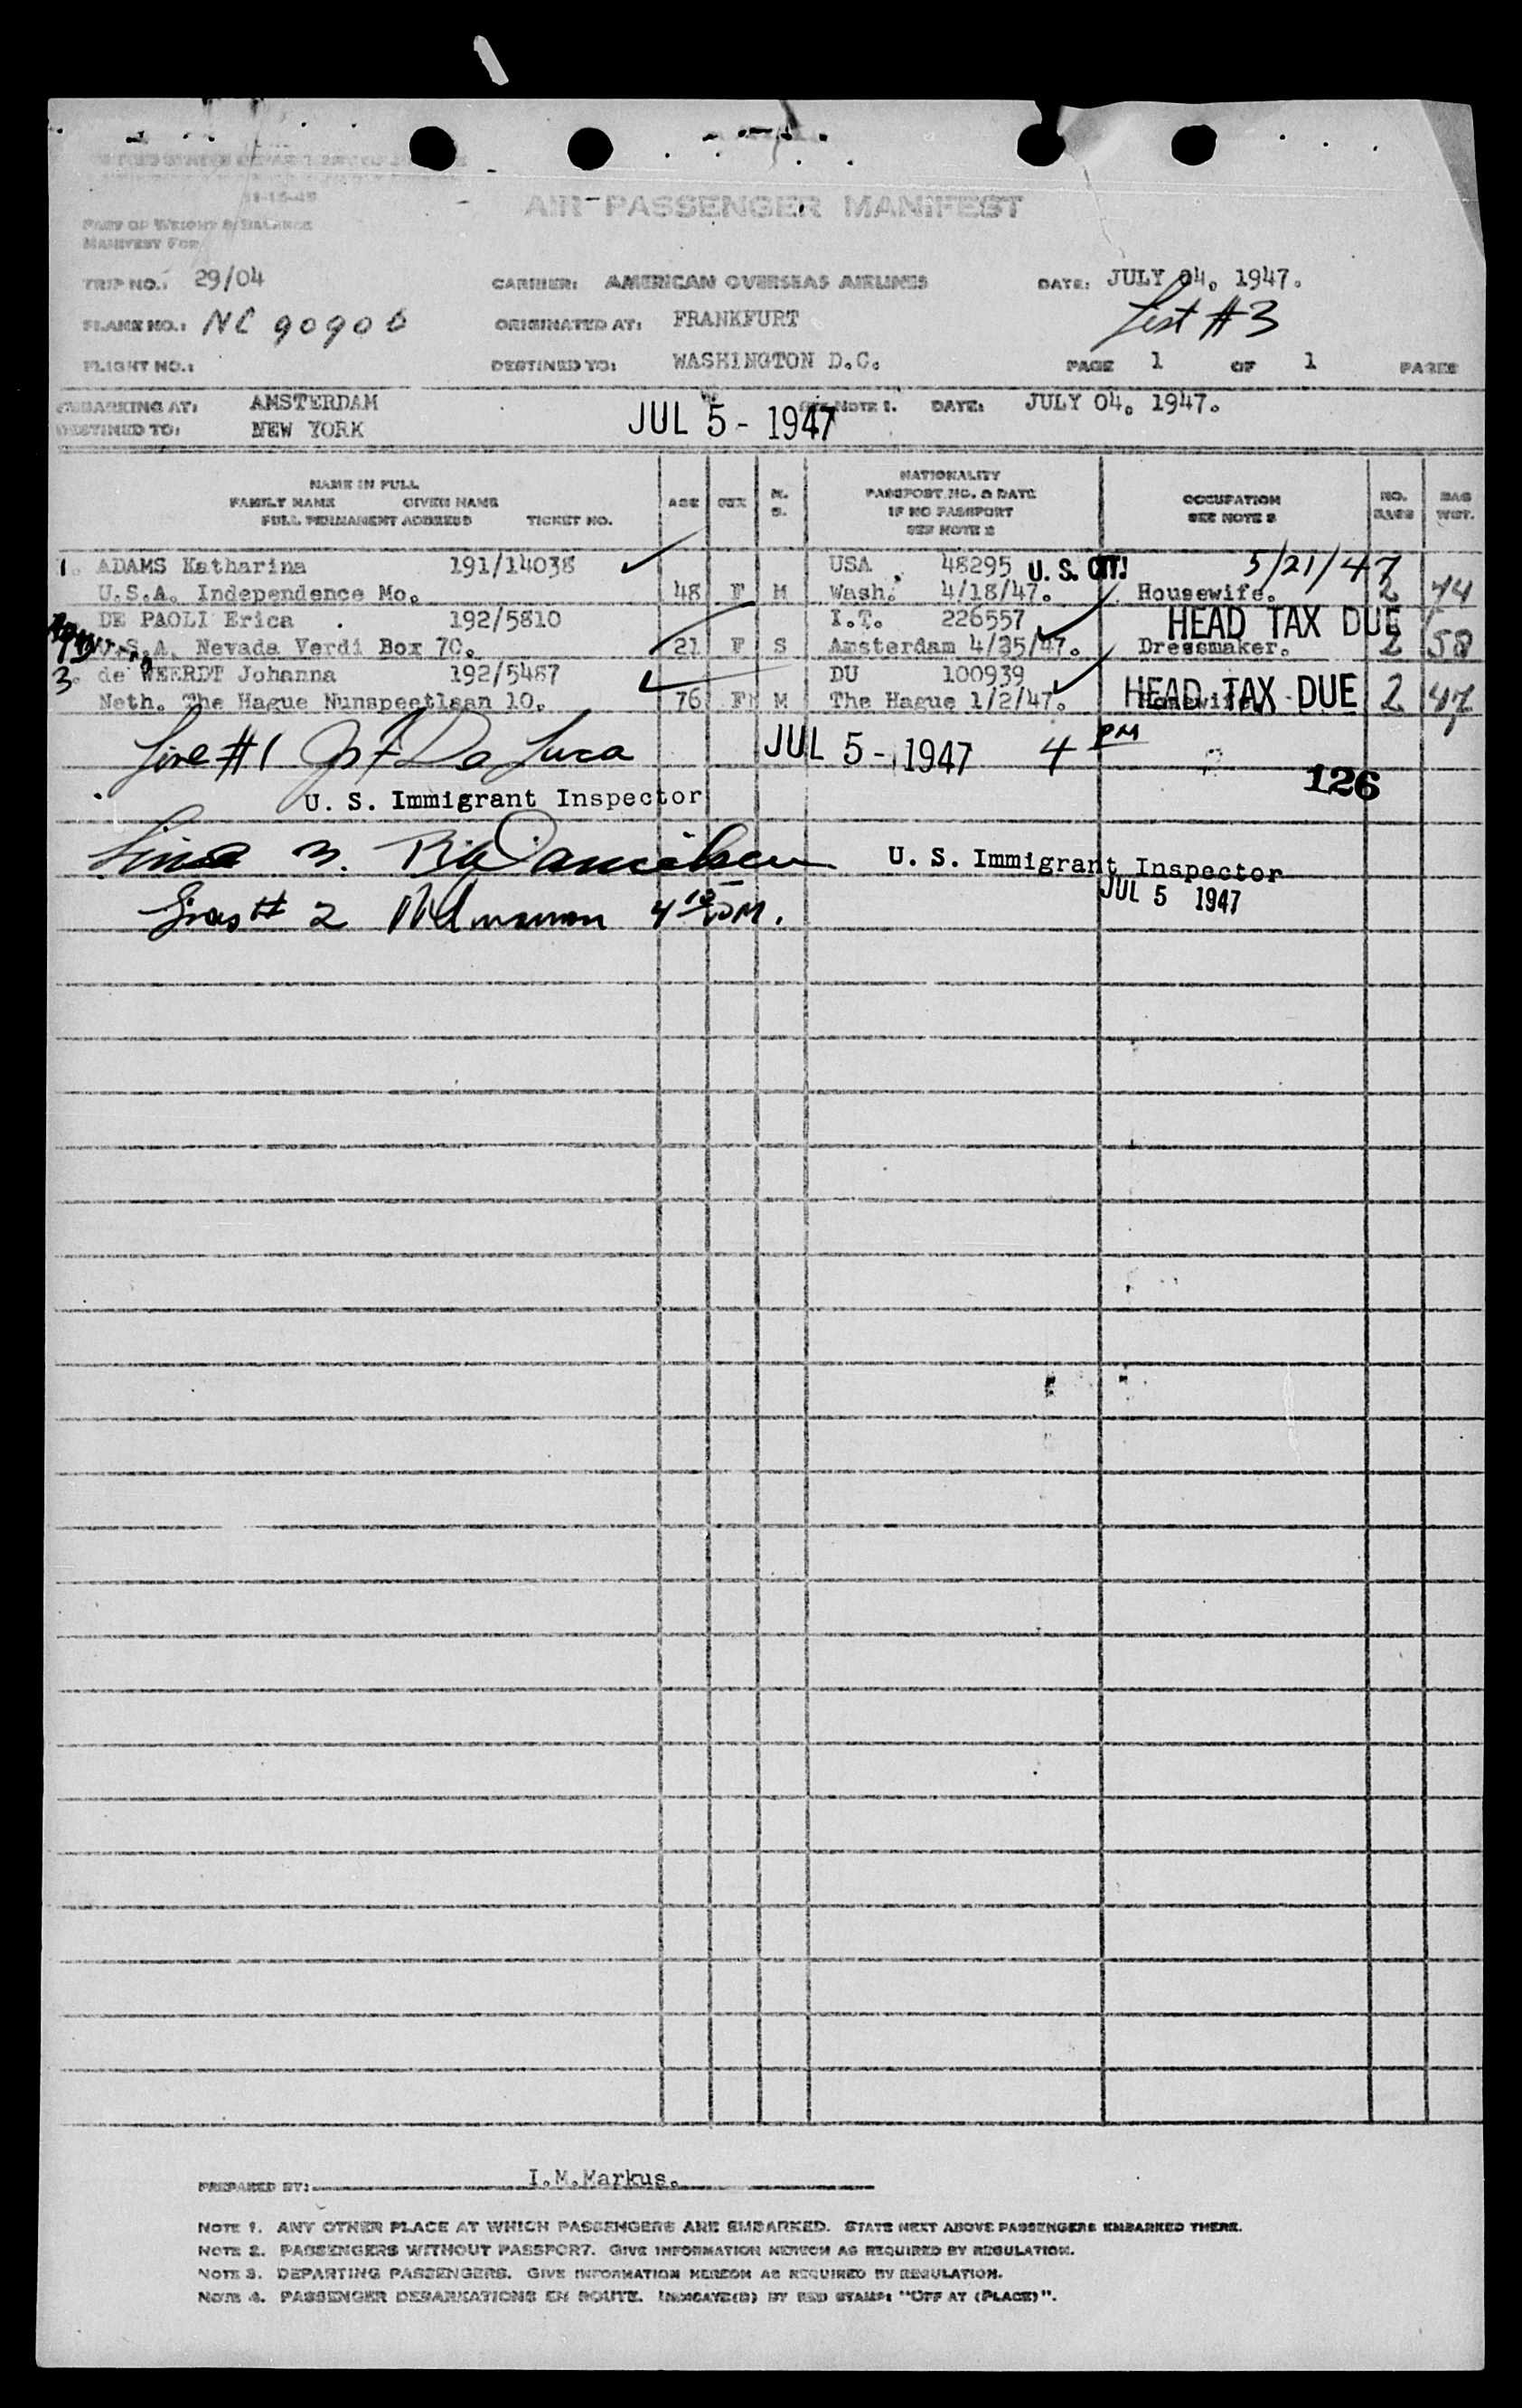 AIR PASSENGER MANIFEST
PART OF WEIGHT & BALANCE
MANIFEST FOR
TRIP NO.: 29/04 CARRIER: AMERICAN OVERSEAS AIRLINES DATE: JULY 04. 1947.
List #3
PLANE NO.: NC 90906 ORIGINATED AT: FRANKFURT
FLIGHT NO.: DESTINED TO: WASHINGTON D.C. PAGE 1 OF 1 PAGES
EMBARKING AT: AMSTERDAM SEE NOTE 1. DATE: JULY 04. 1947.
DESTINED TO: NEW YORK JUL 5 - 1947
NAME IN FULL
FAMILY NAME GIVEN NAME
FULL PERMANENT ADDRESS TICKET NO.
AGE SEX M. S.
NATIONALITY
PASSPORT NO. & DATE
IF NO PASSPORT
SEE NOTE 2
OCCUPATION
SEE NOTE 3
NO. BAGS
BAG WGT.
1. ADAMS Katharina 191/14038 USA 48295 U. S. CIT. 5/21/47
U.S.A. Independence Mo. 48 F M Wash. 4/18/47. Housewife. 2 44
DE PAOLI Erica 192/5810 I.T. 226557 HEAD TAX DUE
U.S.A. Nevada Verdi Box 70. 21 F S Amsterdam 4/25/47. Dressmaker. 2 58
3. de WEERDT Johanna 192/5487 DU 100939
Neth. The Hague Nunspeetlaan 10. 76 F M The Hague 1/2/47. Housewife. HEAD TAX DUE 2 47
Line #1 De Luca JUL 5 - 1947 4 PM
126
U. S. Immigrant Inspector
Line 3. Danielsen U. S. Immigrant Inspector
JUL 5 1947
Line # 2 4 15 PM.
PREPARED BY: I.M.Markus.
NOTE 1. ANY OTHER PLACE AT WHICH PASSENGERS ARE EMBARKED. STATE NEXT ABOVE PASSENGERS EMBARKED THERE.
NOTE 2. PASSENGERS WITHOUT PASSPORT. GIVE INFORMATION HEREON AS REQUIRED BY REGULATION.
NOTE 3. DEPARTING PASSENGERS. GIVE INFORMATION HEREON AS REQUIRED BY REGULATION.
NOTE 4. PASSENGER DEBARKATIONS EN ROUTE. INDICATE(D) BY RED STAMP: "OFF AT (PLACE)".